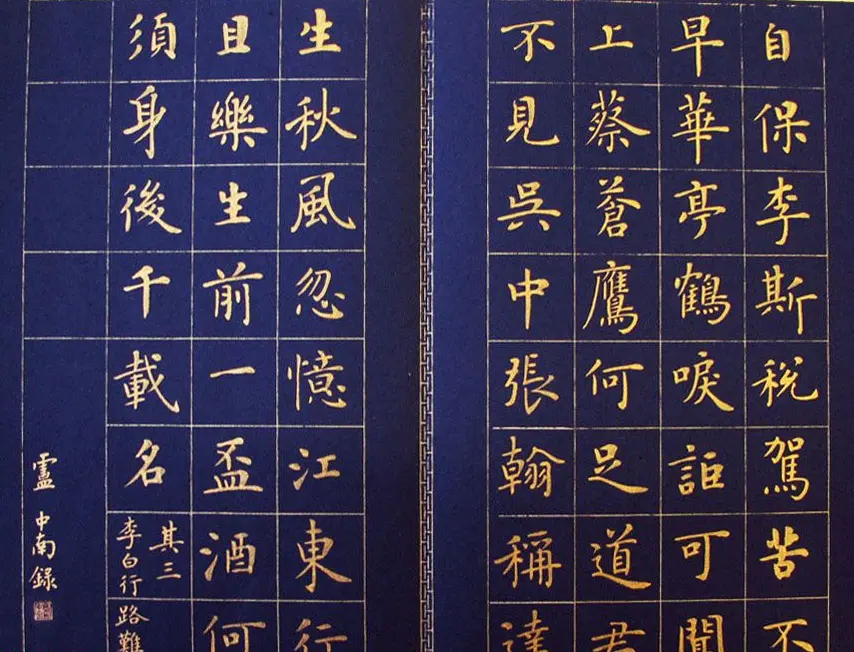 自保李斯税駕苦不
早華亭鶴唳詎可聞
上蔡蒼鷹何足道君
不見吳中張翰稱達
生秋風忽憶江東行
且樂生前一盃酒何
須身後千載名
其三
李白行路難
盧中南錄